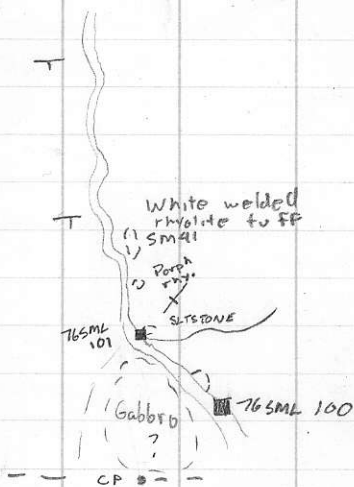 White welded
rhyolite tuff
SM41
Porph
rhy.
SLTSTONE
76SML
101
76SML 100
Gabbro
?
CP